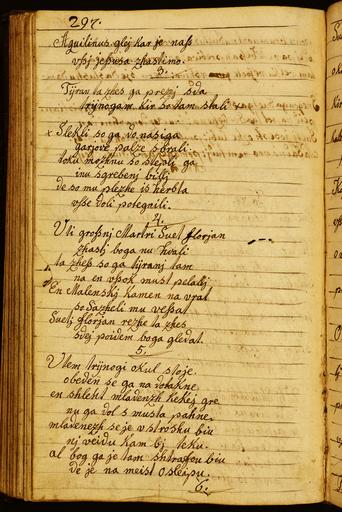 297.
Aquilinus glej kar je naß
vßj jeßusa zhastimo.
2.
Tÿrin ta zhes ga prezej sda
trÿnogam kir so tam stali
x Slekli so ga do nasiga
garjove palze sbrali
toku mozhnu so stepali ga
inu sgrebeni billj
de so mu plezhe is herbta
vße doli potegnili.
4.
V ti großnj Martri Suet florjan
zhastj boga nu hvali
ta zheß so ga tÿranj tam
na en vßok must pelalj
En Malenskj kamen na vrat
so Sazheli mu veßat
Suetj florjan rezhe ta zhes
sdej poidem boga gledat.
5.
Vßem trÿnogi okul stoje
obeden se ga na dotakne
en shleht mladenzh kekej gre
nu ga dol s musta pahne
mladenezh se je v strosku biu
nj veidu kam bj teku.
al bog ga je tam shtrafou biu
de je na meist oslepu.
6.